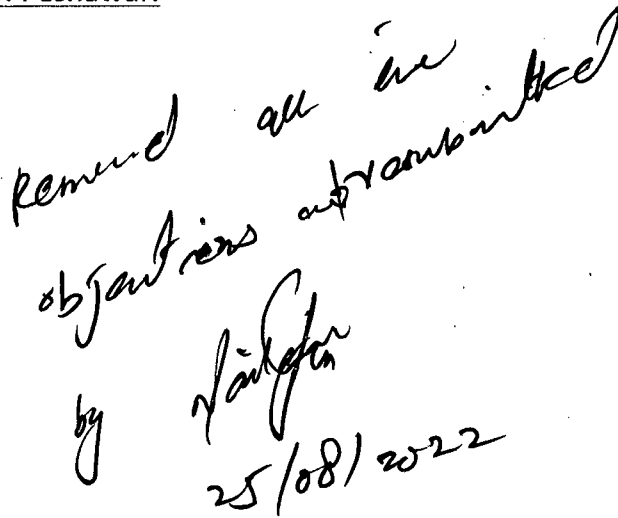 Removed all the
objections and resubmitted
by
25/08/2022